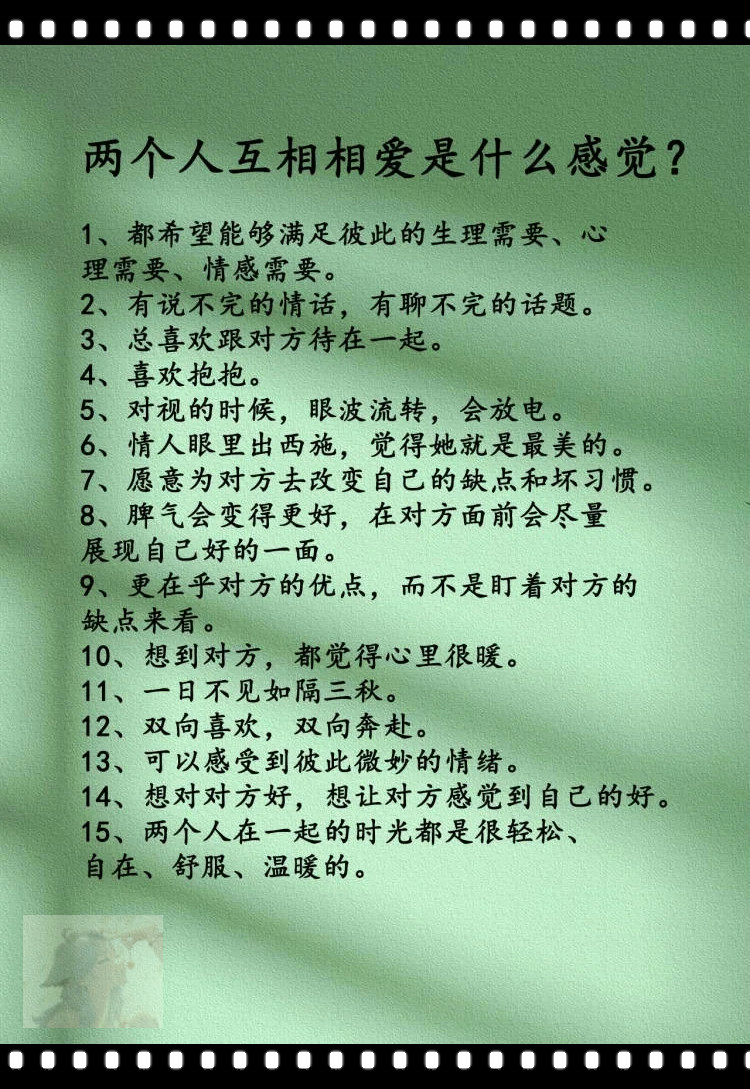 两个人互相相爱是什么感觉？
1、都希望能够满足彼此的生理需要、心
理需要、情感需要。
2、有说不完的情话，有聊不完的话题。
3、总喜欢跟对方待在一起。
4、喜欢抱抱。
5、对视的时候，眼波流转，会放电。
6、情人眼里出西施，觉得她就是最美的。
7、愿意为对方去改变自己的缺点和坏习惯。
8、脾气会变得更好，在对方面前会尽量
展现自己好的一面。
9、更在乎对方的优点，而不是盯着对方的
缺点来看。
10、想到对方，都觉得心里很暖。
11、一日不见如隔三秋。
12、双向喜欢，双向奔赴。
13、可以感受到彼此微妙的情绪。
14、想对对方好，想让对方感觉到自己的好。
15、两个人在一起的时光都是很轻松、
自在、舒服、温暖的。